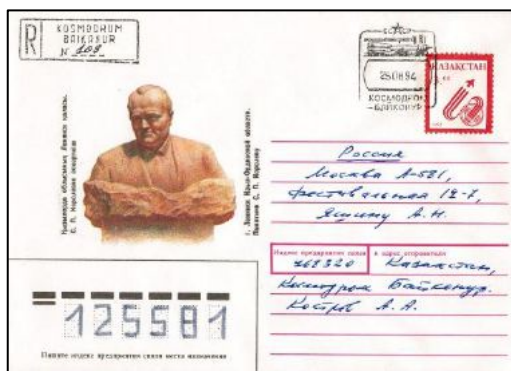 R
KOSMODROM
BAIKONUR
N 109
25 08 94
КОСМОДРОМ
БАЙКОНУР
КАЗАКСТАН
г. Ленинск Кзыл-Ординской области.
Памятник С. П. Королеву
Россия
Москва А-581,
Фестивальная 12-7,
Яшину А. Н.
Индекс предприятия связи и адрес отправителя
468320 Казахстан,
Космодром Байконур.
Костров А. А.
125581
Пишите индекс предприятия связи места назначения